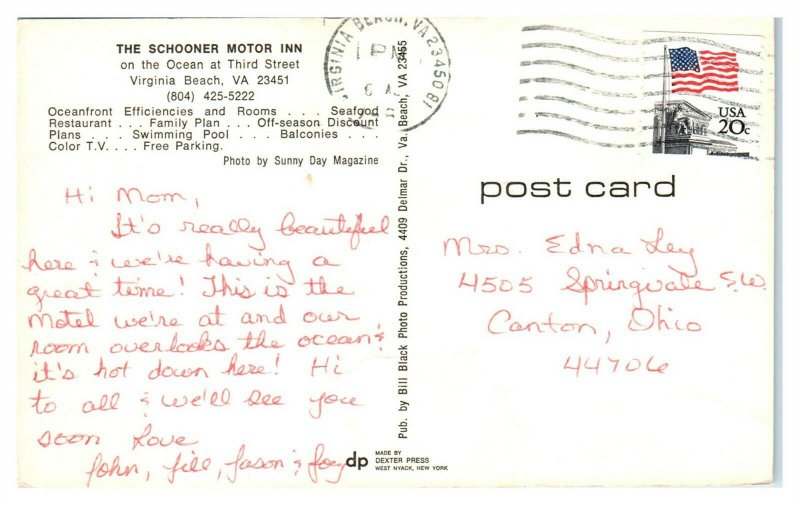 THE SCHOONER MOTOR INN
on the Ocean at Third Street
Virginia Beach, VA 23451
(804) 425-5222
Oceanfront Efficiencies and Rooms . . . Seafood
Restaurant . . . Family Plan . . . Off-season Discount
Plans . . . Swimming Pool . . . Balconies . . .
Color T.V. . . . Free Parking.
Photo by Sunny Day Magazine
Hi Mom,
It's really beautiful
here & we're having a
great time! This is the
motel we're at and our
room overlooks the ocean &
it's hot down here! Hi
to all & we'll see you
soon Love
John, Jill, Jason & Joey
Pub. by Bill Black Photo Productions, 4409 Delmar Dr., Va. Beach, VA 23455
dp
MADE BY
DEXTER PRESS
WEST NYACK, NEW YORK
VIRGINIA BEACH, VA 23450
PM
6
USA
20c
post card
Mrs. Edna Ley
4505 Springvale S.W.
Canton, Ohio
44706